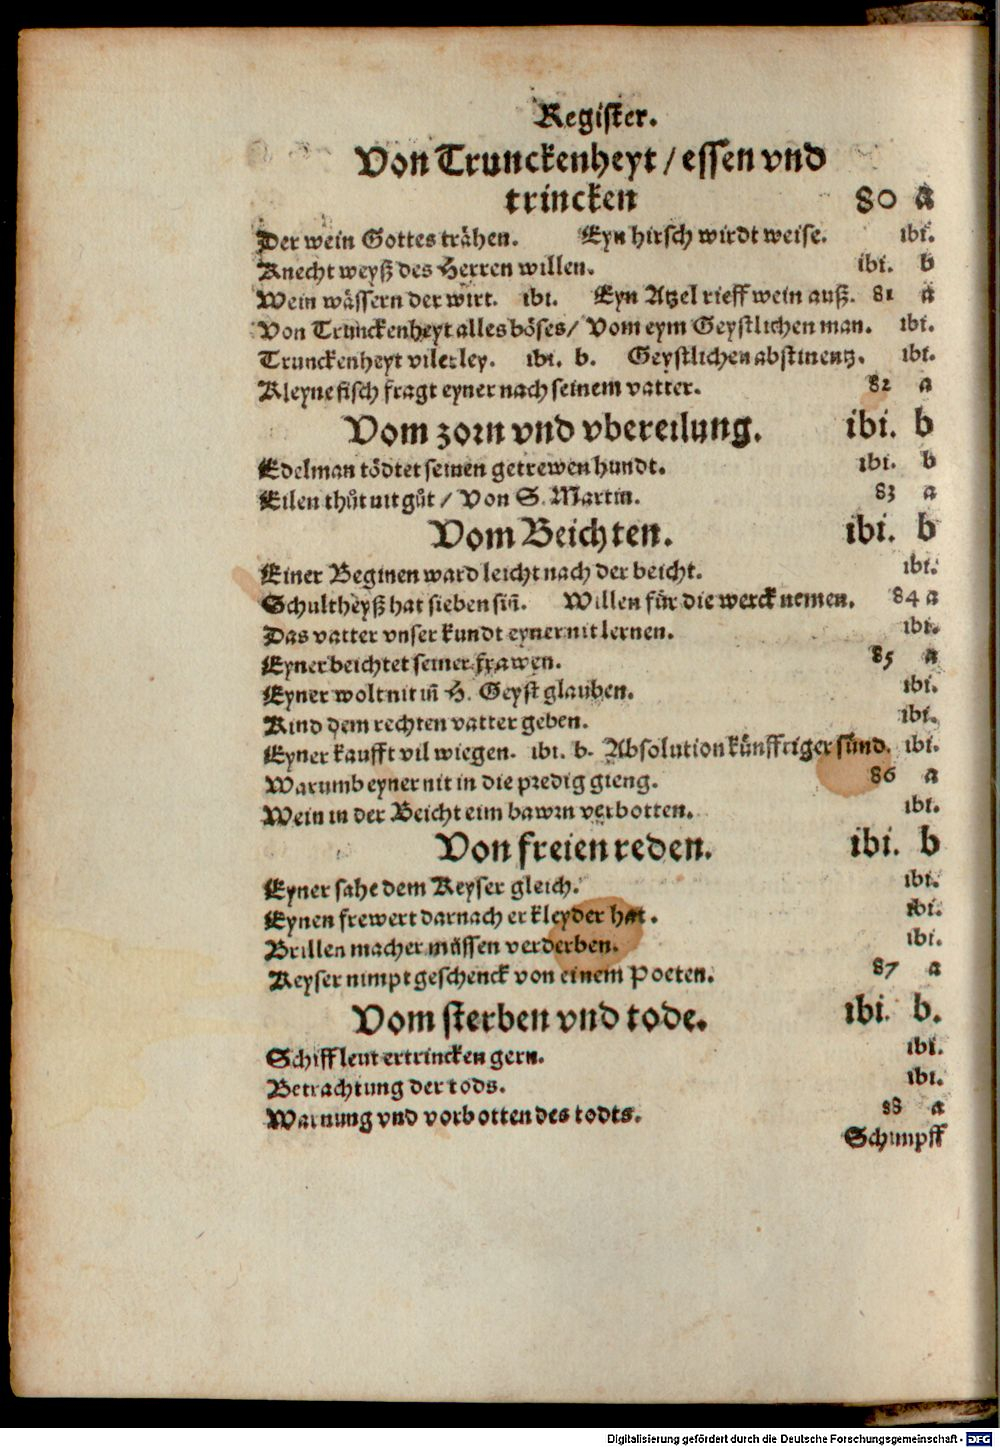 Register.
Von Trunckenheyt / essen vnd
trincken 80 a
Der wein Gottes trähen. Eyn hirsch wirdt weise. ibi.
Knecht weyß des Herren willen. ibi. b
Wein wässern der wirt. ibi. Eyn Atzel rieff wein auß. 81 a
Von Trunckenheyt alles böses / Vom eym Geystlichen man. ibi.
Trunckenheyt vilerley. ibi. b. Geystlichen abstinentz. ibi.
Kleyne fisch fragt eyner nach seinem vatter. 82 a
Vom zorn vnd vbereilung. ibi. b
Edelman tödtet seinen getrewen hundt. ibi. b
Eilen thůt nit gůt / Von S. Martin. 83 a
Vom Beichten. ibi. b
Einer Beginen ward leicht nach der beicht. ibi.
Schultheyß hat sieben siñ. Willen für die werck nemen. 84 a
Das vatter vnser kundt eyner nit lernen. ibi.
Eyner beichtet seiner frawen. 85 a
Eyner wolt nit iñ H. Geyst glauben. ibi.
Kind dem rechten vatter geben. ibi.
Eyner kaufft vil wiegen. ibi. b. Absolution künfftiger sünd. ibi.
Warumb eyner nit in die predig gieng. 86 a
Wein in der Beicht eim bawrn verbotten. ibi.
Von freien reden. ibi. b
Eyner sahe dem Keyser gleich. ibi.
Eynen frewert darnach er kleyder hat. ibi.
Brillen macher müssen verderben. ibi.
Keyser nimpt geschenck von einem Poeten. 87 a
Vom sterben vnd tode. ibi. b.
Schiffleut ertrincken gern. ibi.
Betrachtung der tods. ibi.
Warnung vnd vorbotten des todts. 88 a
Schimpff
Digitalisierung gefördert durch die Deutsche Forschungsgemeinschaft - DFG